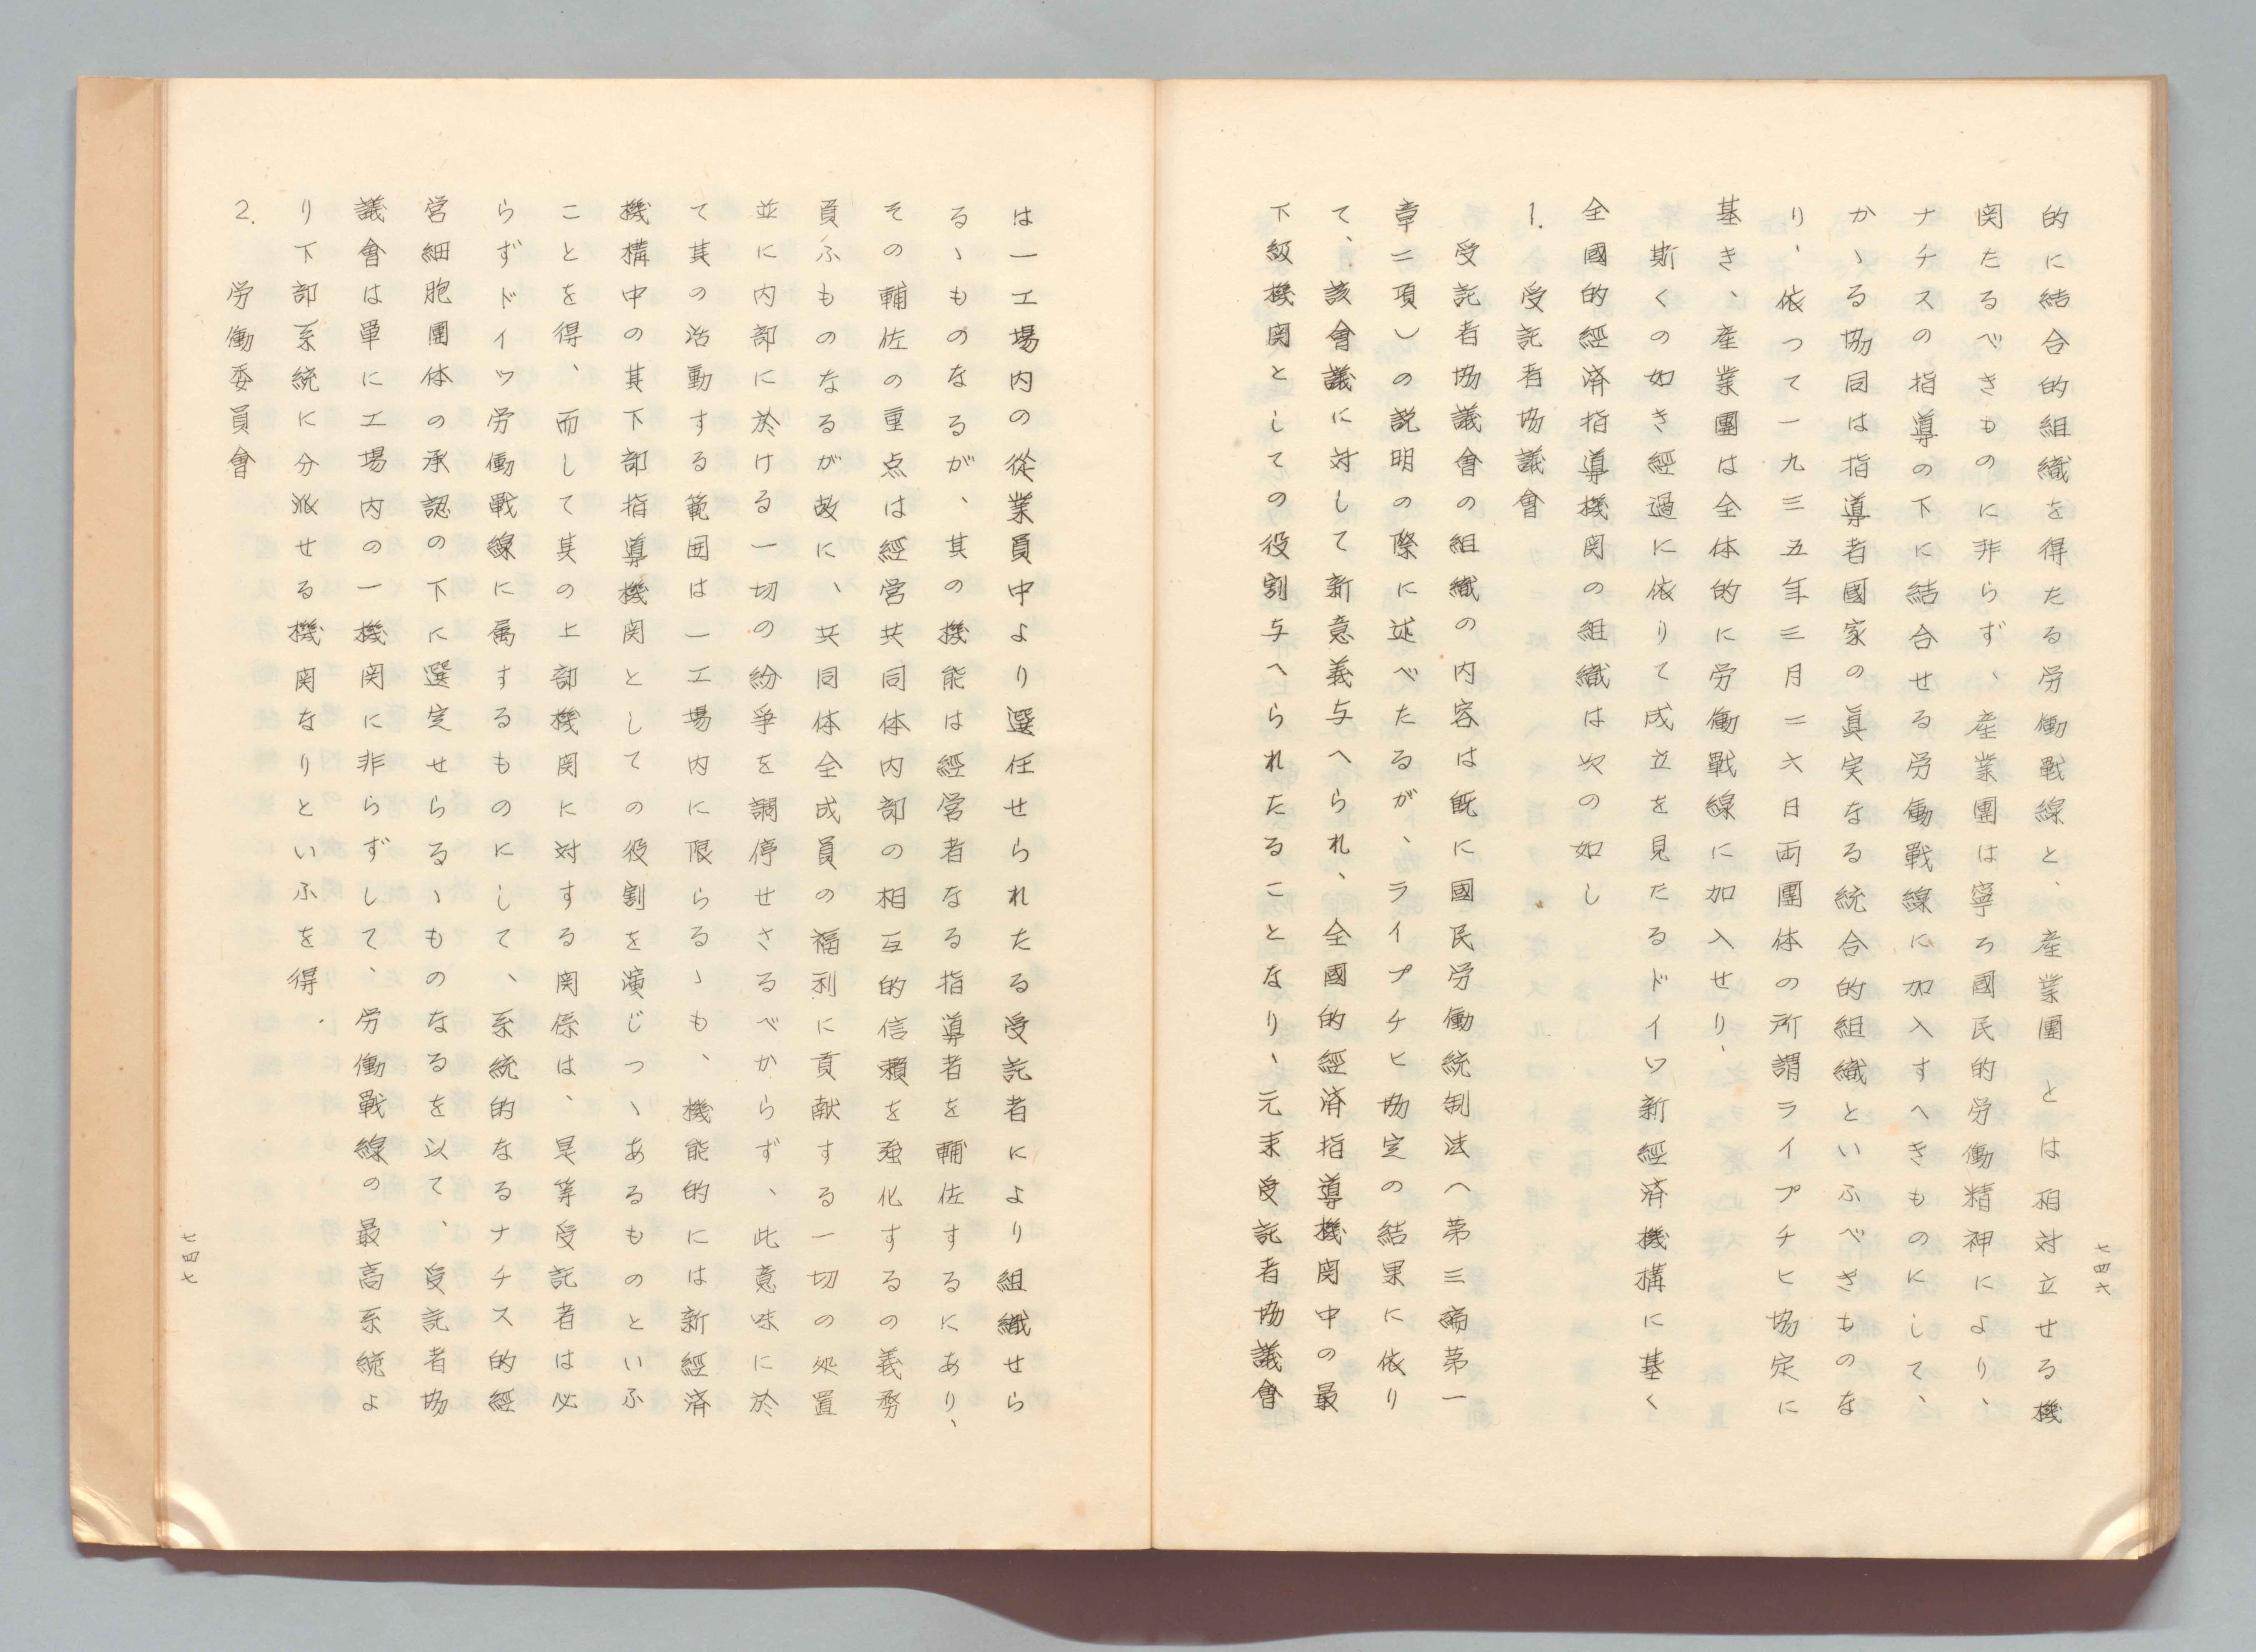 的に結合的組織を得たる労働戦線と、産業團とは相対立せる機
関たるべきものに非らず、産業團は寧ろ國民的労働精神により、
ナチスの指導の下に結合せる労働戦線に加入すへきものにして、
かゝる協同は指導者國家の眞実なる統合的組織といふべきものな
り、依つて一九三五年三月二六日両團体の所謂ライプチヒ協定に
基き、産業團は全体的に労働戦線に加入せり、
斯くの如き經過に依りて成立を見たるドイツ新經済機構に基く
全國的經済指導機関の組織は次の如し
1. 受託者協議會
受託者協議會の組織の内容は既に國民労働統制法へ第三編第一
章二項）の説明の際に述べたるが、ライプチヒ協定の結果に依り
て、該會議に対して新意義与へられ、全國的經済指導機関中の最
下級機関としての役割与へられたることなり、元来受託者協議會
七四六
は一工場内の從業員中より選任せられたる受託者により組織せら
るゝものなるが、其の機能は經営者なる指導者を輔佐するにあり、
その輔佐の重点は經営共同体内部の相互的信頼を强化するの義務
負ふものなるが故に、共同体全成員の福利に貢献する一切の処置
並に内部に於ける一切の紛爭を調停せさるべからず、此意味に於
て其の活動する範囲は一工場内に限らるゝも、機能的には新經済
機構中の其下部指導機関としての役割を演じつゝあるものといふ
ことを得、而して其の上部機関に対する関係は、是等受託者は必
らずドイツ労働戦線に属するものにして、系統的なるナチス的經
営細胞團体の承認の下に選定せらるゝものなるを以て、受託者協
議會は単に工場内の一機関に非らずして、労働戰線の最高系統よ
り下部系統に分派せる機関なりといふを得.
2. 労働委員會
七四七